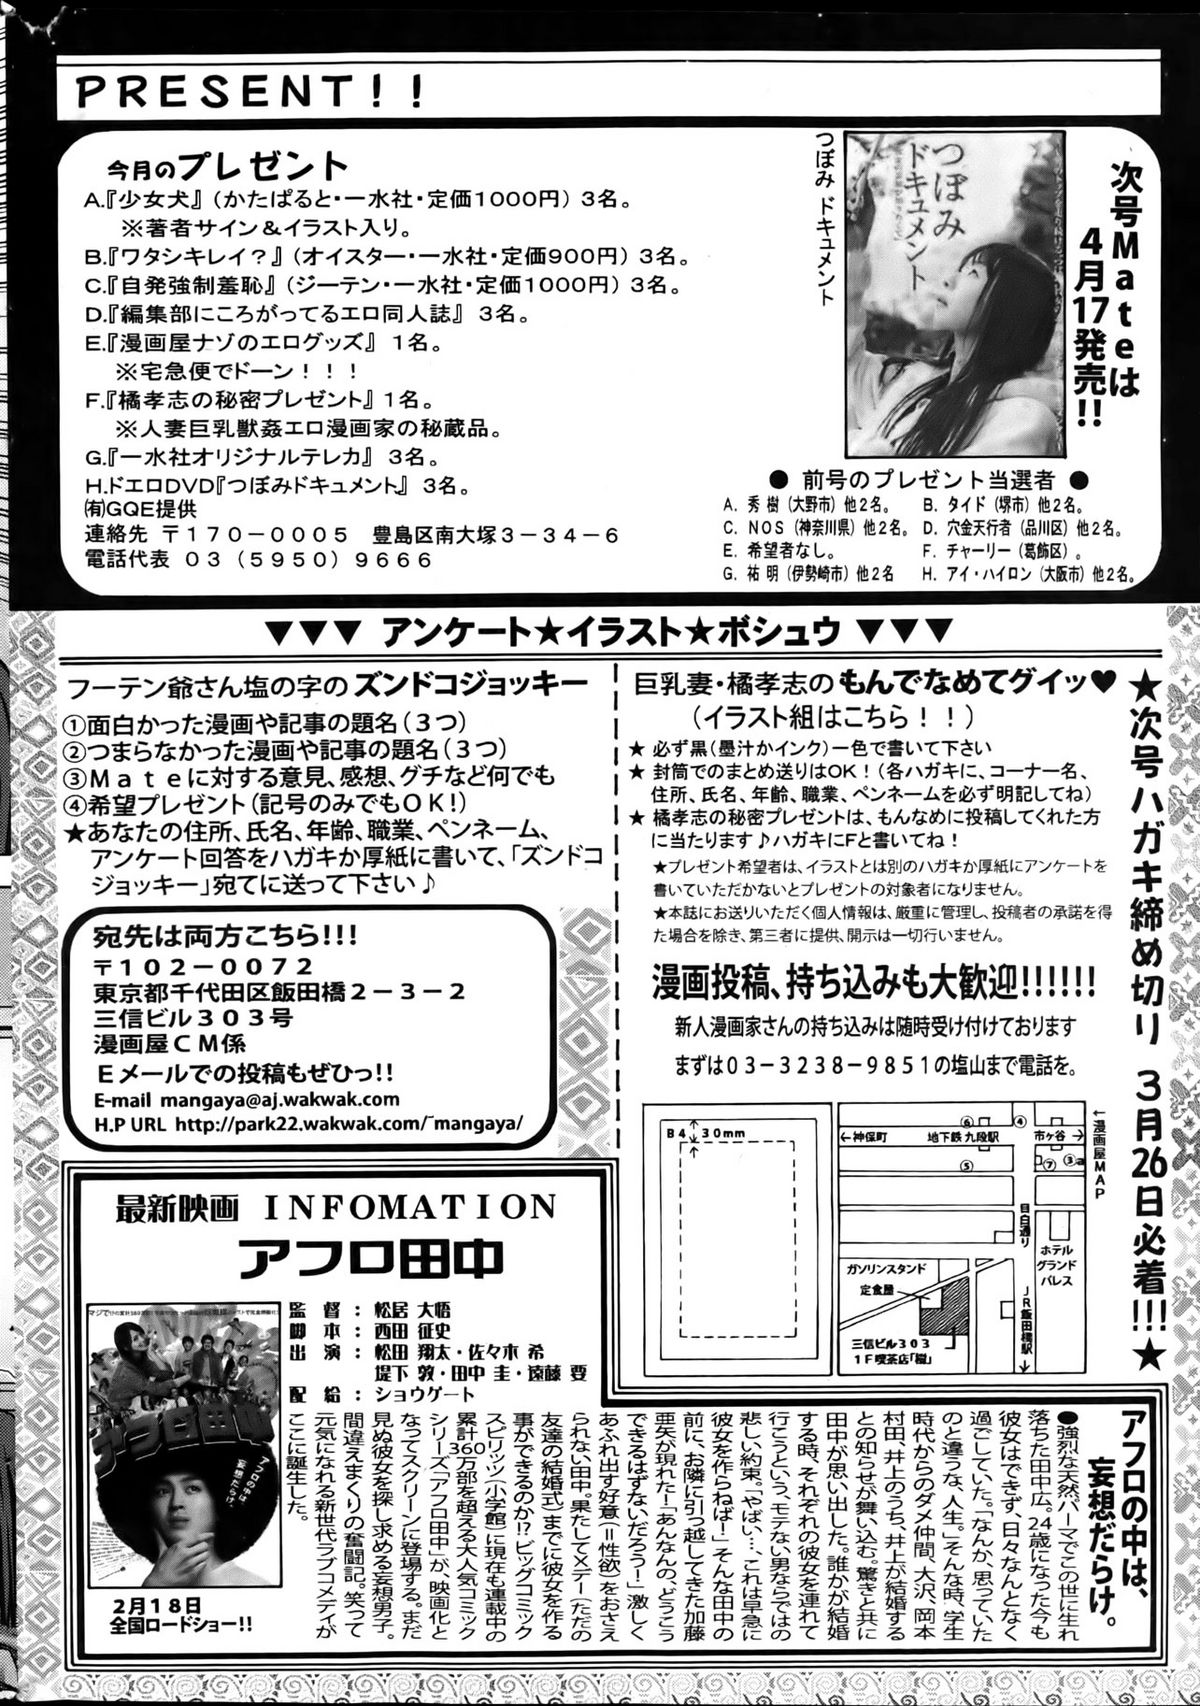 PRESENT!!
今月のプレゼント
A.『少女犬』(かたぱると・一水社・定価1000円) 3名。
※著者サイン&イラスト入り。
B.『ワタシキレイ?』(オイスター・一水社・定価900円) 3名。
C.『自発強制羞恥』(ジーテン・一水社・定価1000円) 3名。
D.『編集部にころがってるエロ同人誌』 3名。
E.『漫画屋ナゾのエログッズ』 1名。
※宅急便でドーン!!!
F.『橘孝志の秘密プレゼント』1名。
※人妻巨乳獣姦エロ漫画家の秘蔵品。
G.『一水社オリジナルテレカ』 3名。
H.ドエロDVD『つぼみドキュメント』3名。
㈲GQE提供
連絡先 〒170-0005 豊島区南大塚3-34-6
電話代表 03 (5950) 9666
つぼみ ドキュメント
つぼみ
ドキュメント
次号Mateは
4月17発売!!
● 前号のプレゼント当選者 ●
A. 秀 樹 (大野市) 他2名。 B. タイド (堺市) 他2名。
C. NOS (神奈川県) 他2名。 D. 穴金天行者 (品川区) 他2名。
E. 希望者なし。 F. チャーリー (葛飾区) 。
G. 祐 明 (伊勢崎市) 他2名 H. アイ・ハイロン (大阪市) 他2名。
▼▼▼ アンケート★イラスト★ボシュウ ▼▼▼
フーテン爺さん塩の字の ズンドコジョッキー
①面白かった漫画や記事の題名(3つ)
②つまらなかった漫画や記事の題名(3つ)
③Mateに対する意見、感想、グチなど何でも
④希望プレゼント(記号のみでもOK!)
★あなたの住所、氏名、年齢、職業、ペンネーム、
アンケート回答をハガキか厚紙に書いて、「ズンドコ
ジョッキー」宛てに送って下さい♪
宛先は両方こちら!!!
〒102-0072
東京都千代田区飯田橋2-3-2
三信ビル303号
漫画屋CM係
Eメールでの投稿もぜひっ!!
E-mail mangaya@aj.wakwak.com
H.P URL http://park22.wakwak.com/~mangaya/
巨乳妻・橘孝志の もんでなめてグイッ♥
(イラスト組はこちら!!)
★ 必ず黒(墨汁かインク)一色で書いて下さい
★ 封筒でのまとめ送りはOK!(各ハガキに、コーナー名、
住所、氏名、年齢、職業、ペンネームを必ず明記してね)
★ 橘孝志の秘密プレゼントは、もんなめに投稿してくれた方
に当たります♪ハガキにFと書いてね!
★プレゼント希望者は、イラストとは別のハガキか厚紙にアンケートを
書いていただかないとプレゼントの対象者になりません。
★本誌にお送りいただく個人情報は、厳重に管理し、投稿者の承諾を得
た場合を除き、第三者に提供、開示は一切行いません。
漫画投稿、持ち込みも大歓迎!!!!!!
新人漫画家さんの持ち込みは随時受け付けております
まずは03-3238-9851の塩山まで電話を。
★次号ハガキ締め切り 3月26日必着!!!★
B4 30mm
←漫画屋MAP
←神保町 地下鉄 九段駅 市ヶ谷→
⑥ ④
⑤ ⑦ ③a
目白通り
ホテル
グランド
パレス
ガソリンスタンド
定食屋
三信ビル303
1F喫茶店「櫂」
JR飯田橋駅→
最新映画 INFOMATION
アフロ田中
監督:松居 大悟
脚本:西田 征史
出演:松田 翔太・佐々木 希
堤下 敦・田中 圭・遠藤 要
配給:ショウゲート
アフロ田中
アフロの中は、
妄想だらけ。
2月18日
全国ロードショー!!
アフロの中は、
妄想だらけ。
●強烈な天然パーマでこの世に生れ
落ちた田中広。24歳になった今も
彼女はできず、日々なんとなく
過ごしていた。「なんか、思っていた
のと違うな、人生。」そんな時、学生
時代からのダメ仲間、大沢、岡本
村田、井上のうち、井上が結婚する
との知らせが舞い込む。驚きと共に
田中が思い出した。誰かが結婚
する時、それぞれの彼女を連れて
行こうという、モテない男ならではの
悲しい約束。「やばい…、これは早急に
彼女を作らねば!」そんな田中の
前に、お隣に引っ越してきた加藤
亜矢が現れた!「あんなの、どうこう
できるはずないだろう!」激しく
あふれ出す好意(=性欲)をおさえ
られない田中。果たしてXデー(ただの
友達の結婚式)までに彼女を作る
事ができるのか!?ビッグコミック
スピリッツ(小学館)に現在も連載中の
累計360万部を超える大人気コミック
シリーズ「アフロ田中」が、映画化と
なってスクリーンに登場する。まだ
見ぬ彼女を探し求める妄想男子。
間違えまくりの奮闘記。笑って
元気になれる新世代ラブコメディが
ここに誕生した。